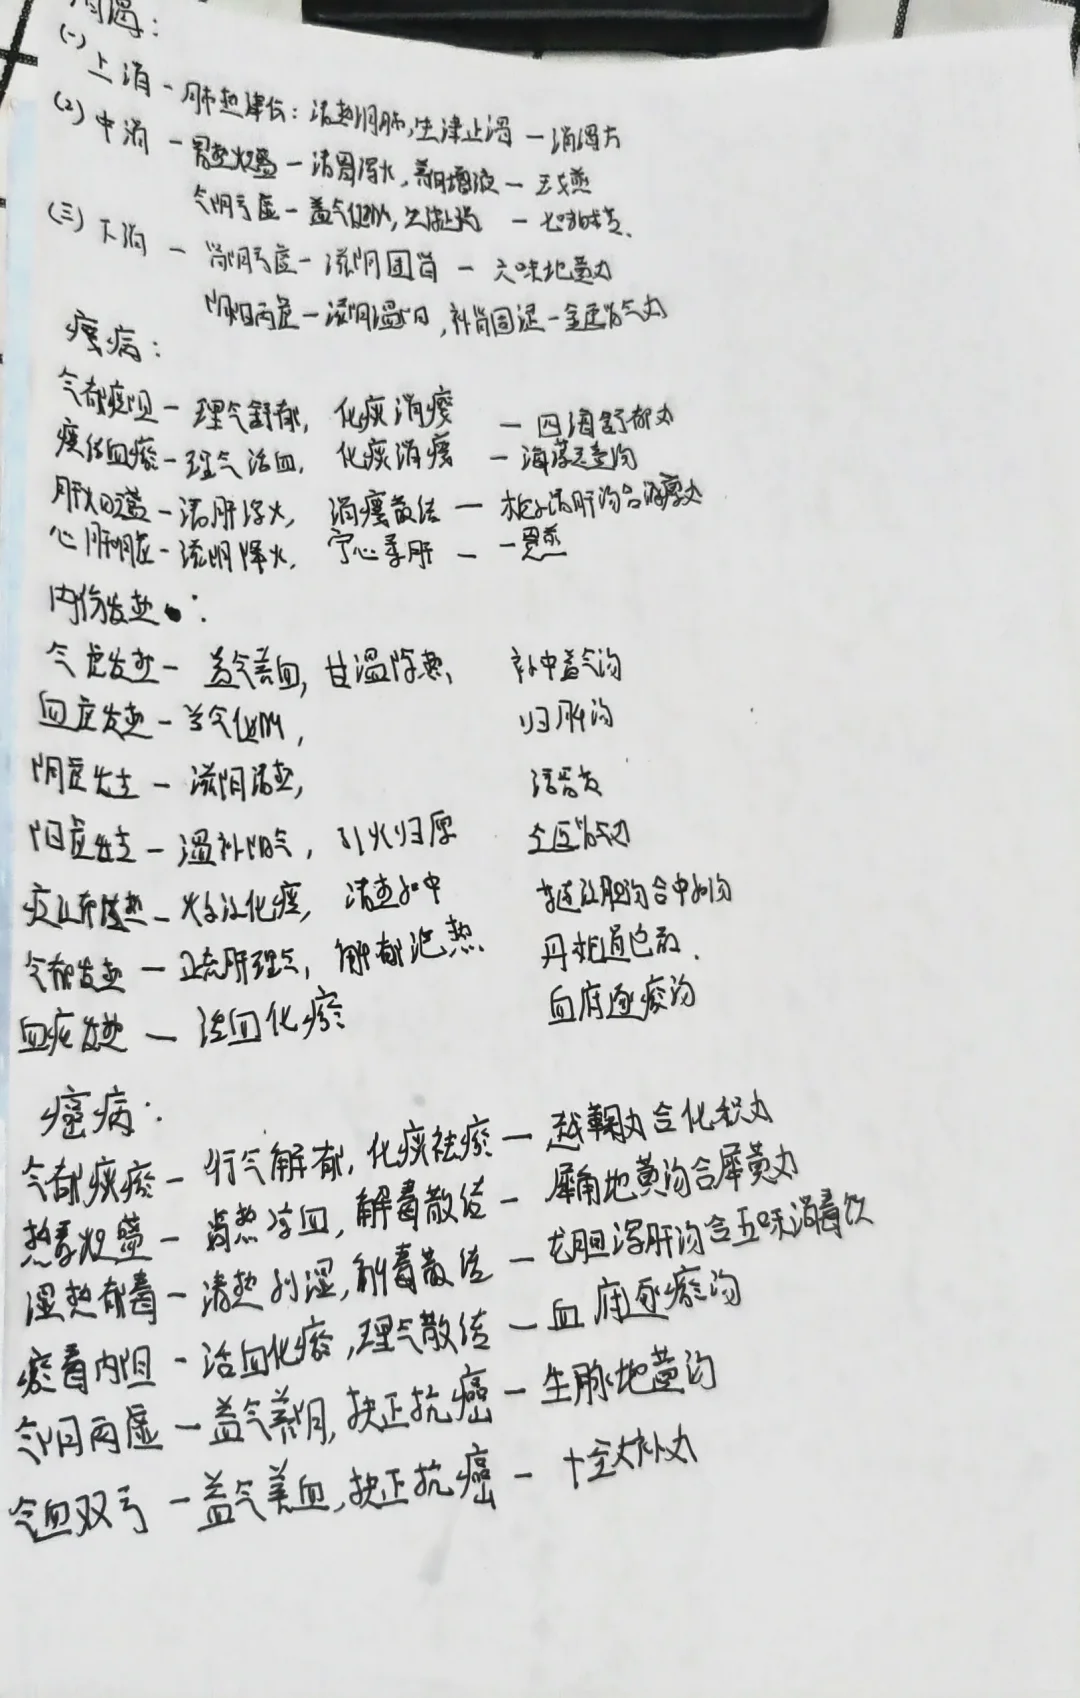 消渴：
(一) 上消 - 肺热津伤：清热润肺，生津止渴 — 消渴方
(2) 中消 - 胃热炽盛 — 清胃泻火，养阴增液 — 玉女煎
气阴亏虚 — 益气健脾，生津止渴 — 七味白术散.
(三) 下消 - 肾阴亏虚 — 滋阴固肾 — 六味地黄丸
阴阳两虚 — 滋阴温阳，补肾固涩 — 金匮肾气丸
瘿病：
气郁痰阻 — 理气舒郁，化痰消瘿 — 四海舒郁丸
痰结血瘀 — 理气活血，化痰消瘿 — 海藻玉壶汤
肝火旺盛 — 清肝泻火，消瘿散结 — 栀子清肝汤合消瘿丸
心肝阴虚 — 滋阴降火，宁心柔肝 — 一贯煎
内伤发热：
气虚发热 — 益气养血，甘温除热、 补中益气汤
血虚发热 — 益气健脾， 归脾汤
阴虚发热 — 滋阴清热， 清骨散
阳虚发热 — 温补阳气，引火归原 金匮肾气丸
痰湿郁热 — 燥湿化痰，清热和中 黄连温胆汤合中和汤
气郁发热 — 疏肝理气，解郁泄热 丹栀逍遥散.
血瘀发热 — 活血化瘀 血府逐瘀汤
癌病：
气郁痰瘀 — 行气解郁，化痰祛瘀 — 越鞠丸合化积丸
热毒炽盛 — 清热凉血，解毒散结 - 犀角地黄汤合犀黄丸
湿热郁毒 — 清热利湿，解毒散结 — 龙胆泻肝汤合五味消毒饮
瘀毒内阻 - 活血化瘀，理气散结 — 血府逐瘀汤
气阴两虚 — 益气养阴，扶正抗癌 - 生脉地黄汤
气血双亏 — 益气养血，扶正抗癌 - 十全大补丸